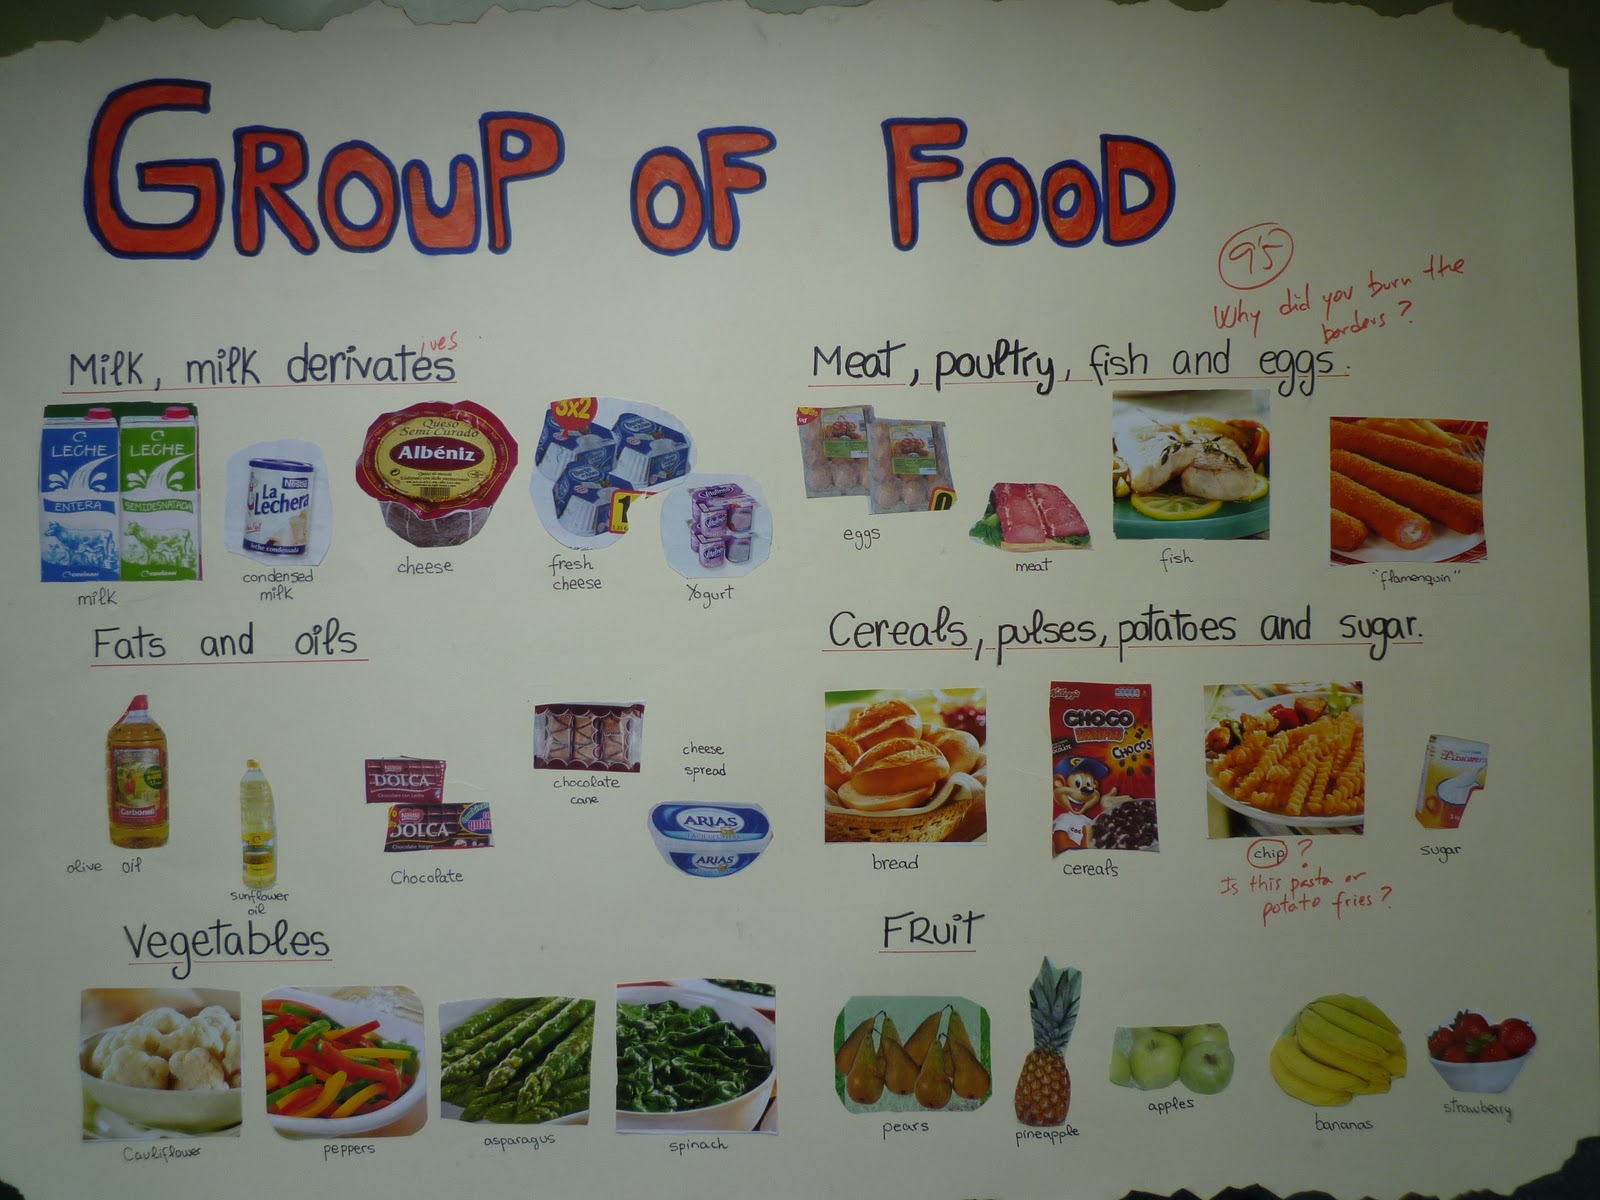 GROUP OF FOOD
9'5
Why did you burn the
borders?
ives
Milk, milk derivates
LECHE
ENTERA
LECHE
SEMIDESNATADA
milk
Nestlé
La
Lechera
leche condensada
condensed
milk
Queso
Semi Curado
Albéniz
cheese
3x2
1
fresh
cheese
Yogurt
Meat, poultry, fish and eggs.
eggs
meat
fish
"flamenquin"
Fats and oils
Carbonell
olive oil
sunflower
oil
Nestlé
DOLCA
Chocolate con Leche
Nestlé
DOLCA
Chocolate Negro
Chocolate
chocolate
cane
cheese
spread
ARIAS
ARIAS
Cereals, pulses, potatoes and sugar.
bread
Kellogg's
CHOCO
CHOCOS
cereals
chip ?
Is this pasta or
potato fries?
Azucarera
sugar
Vegetables
Cauliflower
peppers
asparagus
spinach
FRuit
pears
pineapple
apples
bananas
strawberry